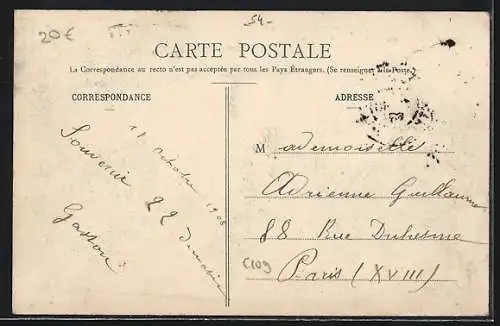 20€
54-
CARTE POSTALE
La Correspondance au recto n'est pas acceptée par tous les Pays Étrangers. (Se renseigner à la Poste)
CORRESPONDANCE
ADRESSE
11 octobre 1908
Souvenir
22
Gaston
Mademoiselle
Adrienne Guillaume
88 Rue Duhesme
Paris (XVIII)
C109